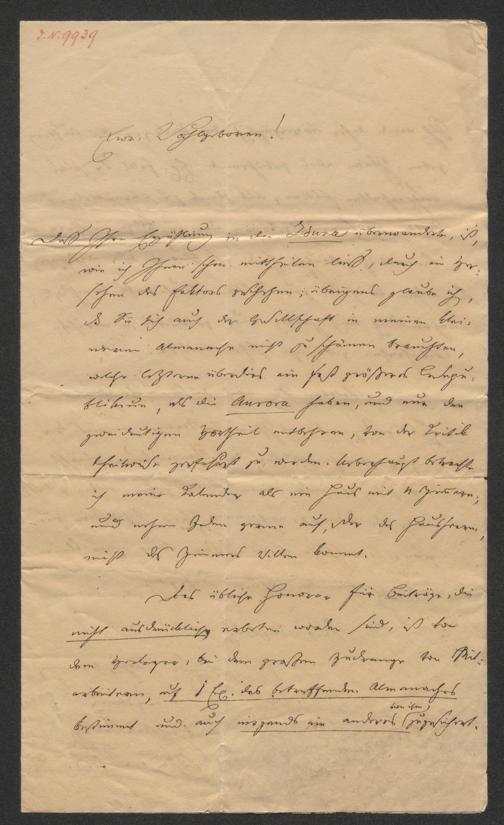 J. N. 9939
Euer Wohlgeboren!
Daß Ihre Erzählung in die Iduna überwanderte, ist,
wie ich Ihnen schon mittheilen ließ, durch ein Ver-
sehen des Faktors geschehen; übrigens glaube ich,
daß Sie sich auch der Gesellschaft in meinem
Almanache nicht zu schämen brauchten,
welche letztere überdies ein fast größeres Lesepu-
blikum, als die Aurora haben, und nur den
zweideutigen Vortheil entbehren, von der Kritik
theilweise zu werden. Ueberhaupt betrachte
ich meine Kalender als ein Haus mit 4 Zimmern,
und nehme Jeden gerne auf, der des Hausherrn,
nicht des Zimmers Willen kommt.
Das übliche Honorar für Beiträge, die
nicht ausdrücklich erbeten worden sind, ist von
dem Verleger, bei dem großen Zudrange von Mit-
arbeitern, auf 1 Ex. des betreffenden Almanaches
bestimmt und auch nirgends ein anderes (von ihm) zugesichert.